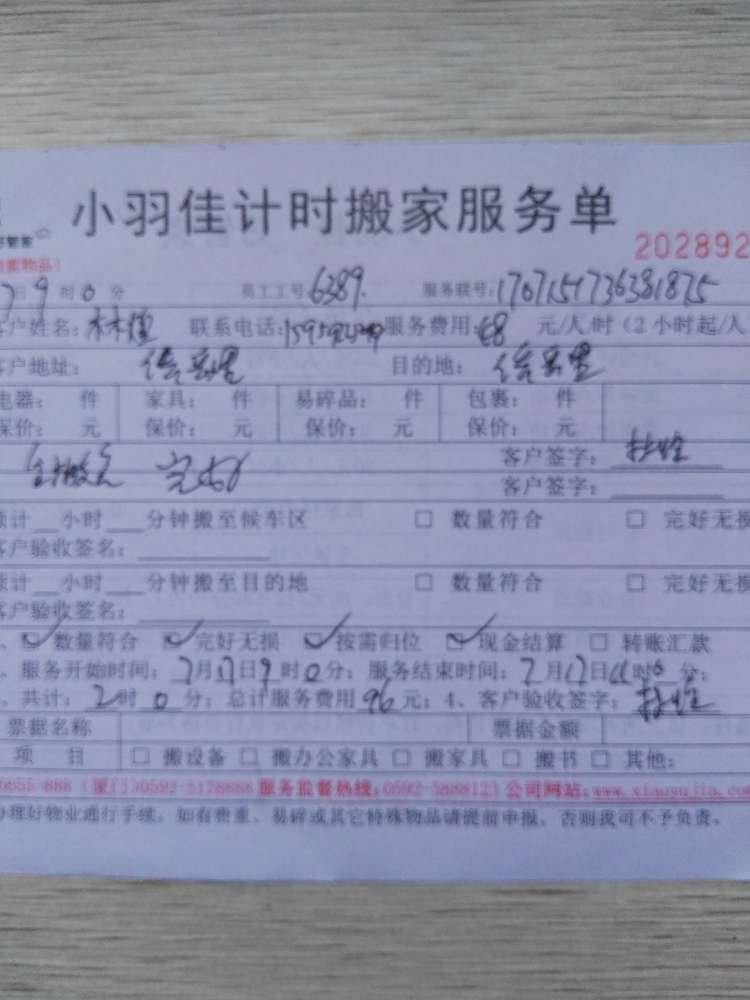 小羽佳计时搬家服务单
202892
日9时0分 员工工号:6389. 服务联号:1707151736381875
户姓名: 联系电话: 服务费用:48 元/人/时(2小时起/人
户地址: 目的地:
电器: 件 家具: 件 易碎品: 件 包裹: 件
保价: 元 保价: 元 保价: 元 保价: 元
完好 客户签字:
客户签字:
预计__小时___分钟搬至候车区 □ 数量符合 □ 完好无损
客户验收签名:
预计__小时___分钟搬至目的地 □ 数量符合 □ 完好无损
客户验收签名:
、☑数量符合 ☑完好无损 ☑按需归位 ☑现金结算 □ 转账汇款
、服务开始时间:7月17日9时0分;服务结束时间:7月17日11时0分;
、共计:2时0分;总计服务费用96元;4、客户验收签字:
票据名称 票据金额
项 目 □ 搬设备 □ 搬办公家具 □ 搬家具 □ 搬书 □ 其他:
6655-888 (厦门)0592-5178888 服务监督热线:0592-5888123 公司网站:www.xiaoyujia.com
办理好物业通行手续,如有贵重、易碎或其它特殊物品请提前申报,否则我司不予负责。